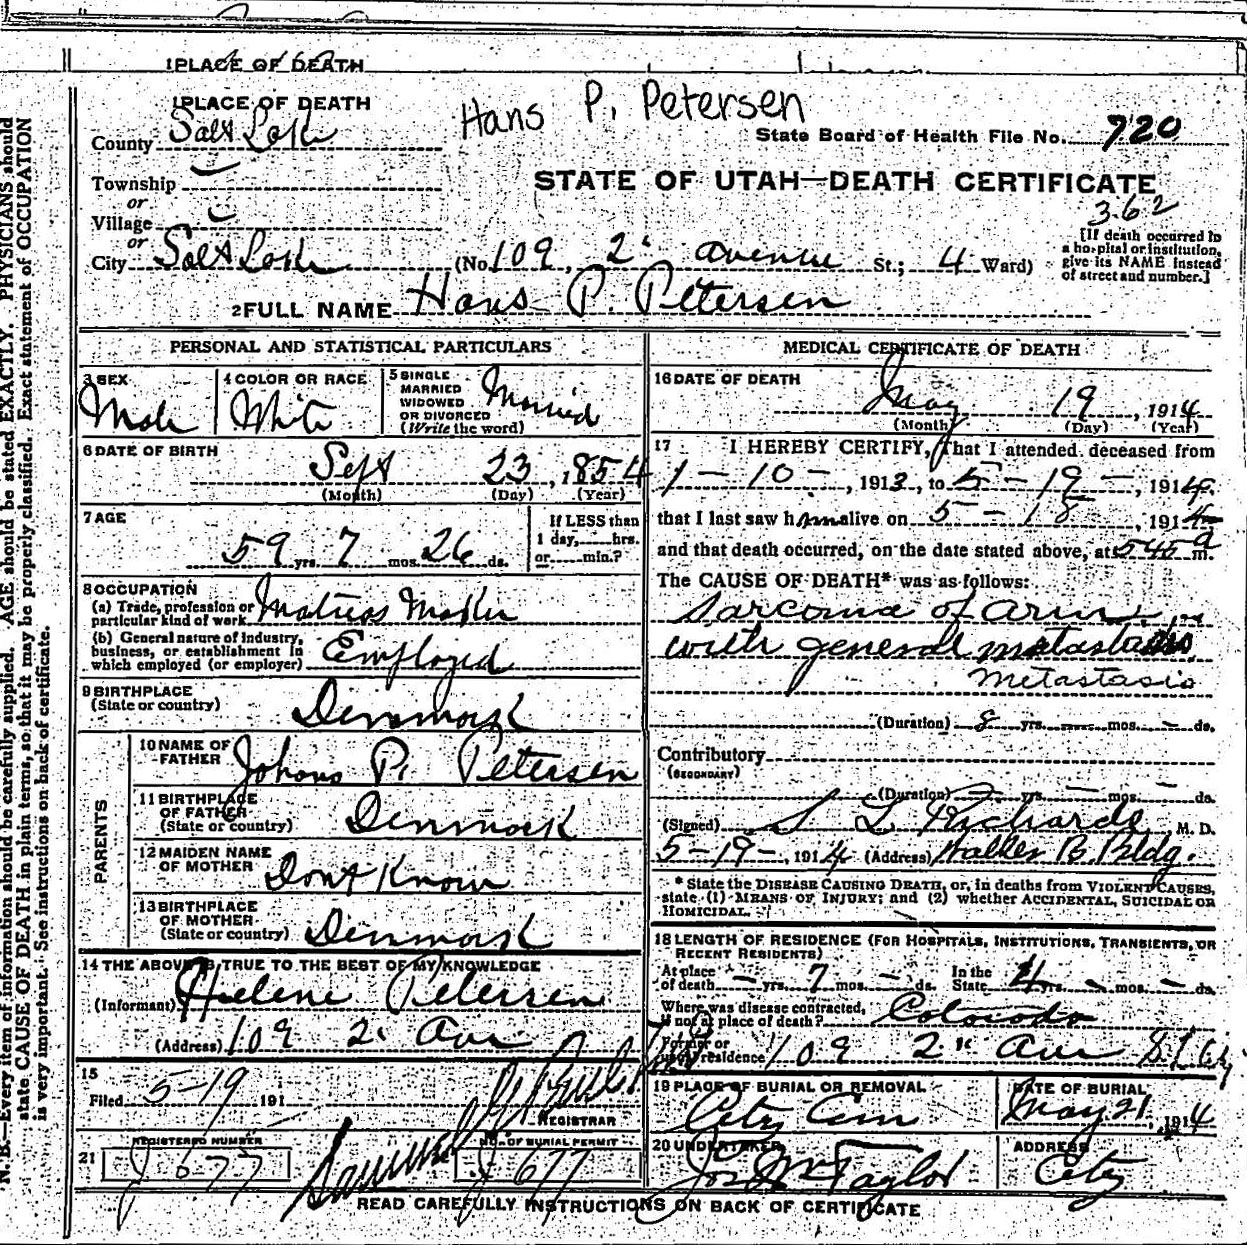 1 PLACE OF DEATH
1 PLACE OF DEATH
Hans P. Petersen
County Salt Lake
State Board of Health File No. 720
Township
or
STATE OF UTAH—DEATH CERTIFICATE
Village
362
or
[If death occurred in a hospital or institution, give its NAME instead of street and number.]
City Salt Lake (No. 109, 2' avenue St.; 4 Ward)
2 FULL NAME Hans P. Petersen
PERSONAL AND STATISTICAL PARTICULARS
3 SEX
Male
4 COLOR OR RACE
White
5 SINGLE
MARRIED
WIDOWED
OR DIVORCED
(Write the word)
Married
6 DATE OF BIRTH
Sept 23, 1854
(Month) (Day) (Year)
7 AGE
59 yrs. 7 mos. 26 ds.
If LESS than
1 day, hrs.
or min.?
8 OCCUPATION
(a) Trade, profession or
particular kind of work Matress Maker
(b) General nature of industry,
business, or establishment in
which employed (or employer) Employed
9 BIRTHPLACE
(State or country)
Denmark
PARENTS
10 NAME OF
FATHER
Johans P. Petersen
11 BIRTHPLACE
OF FATHER
(State or country) Denmark
12 MAIDEN NAME
OF MOTHER
Dont Know
13 BIRTHPLACE
OF MOTHER
(State or country) Denmark
14 THE ABOVE IS TRUE TO THE BEST OF MY KNOWLEDGE
(Informant) Helene Petersen
(Address) 109 2' Ave
15
Filed 5-19 191
REGISTRAR
REGISTERED NUMBER
NO. OF BURIAL PERMIT
21 J 677 J 677
MEDICAL CERTIFICATE OF DEATH
16 DATE OF DEATH
May 19, 1914
(Month) (Day) (Year)
17 I HEREBY CERTIFY, That I attended deceased from
1-10-, 1913, to 5-19-, 1914
that I last saw him alive on 5-18, 1914
and that death occurred, on the date stated above, at 545 a m.
The CAUSE OF DEATH* was as follows:
Sarcoma of arm
with general metastasis
metastasis
(Duration) 8 yrs. — mos. — ds.
Contributory
(SECONDARY)
(Duration) — yrs. — mos. — ds.
(Signed) S L Richards M. D.
5-19-, 1914 (Address) Walker B. Bldg.
* State the DISEASE CAUSING DEATH, or, in deaths from VIOLENT CAUSES,
state (1) MEANS OF INJURY; and (2) whether ACCIDENTAL, SUICIDAL OR
HOMICIDAL.
18 LENGTH OF RESIDENCE (FOR HOSPITALS, INSTITUTIONS, TRANSIENTS, OR
RECENT RESIDENTS)
At place of death — yrs. 7 mos. — ds. In the State 4 yrs. — mos. — ds.
Where was disease contracted,
if not at place of death? Colorado
Former or
usual residence 109 2" Ave S. L. City
19 PLACE OF BURIAL OR REMOVAL
City Cem
DATE OF BURIAL
May 21, 1914
20 UNDERTAKER
Jos Wm Taylor
ADDRESS
City
READ CAREFULLY INSTRUCTIONS ON BACK OF CERTIFICATE
N. B.—Every item of information should be carefully supplied. AGE should be stated EXACTLY. PHYSICIANS should
state CAUSE OF DEATH in plain terms, so that it may be properly classified. Exact statement of OCCUPATION
is very important. See instructions on back of certificate.